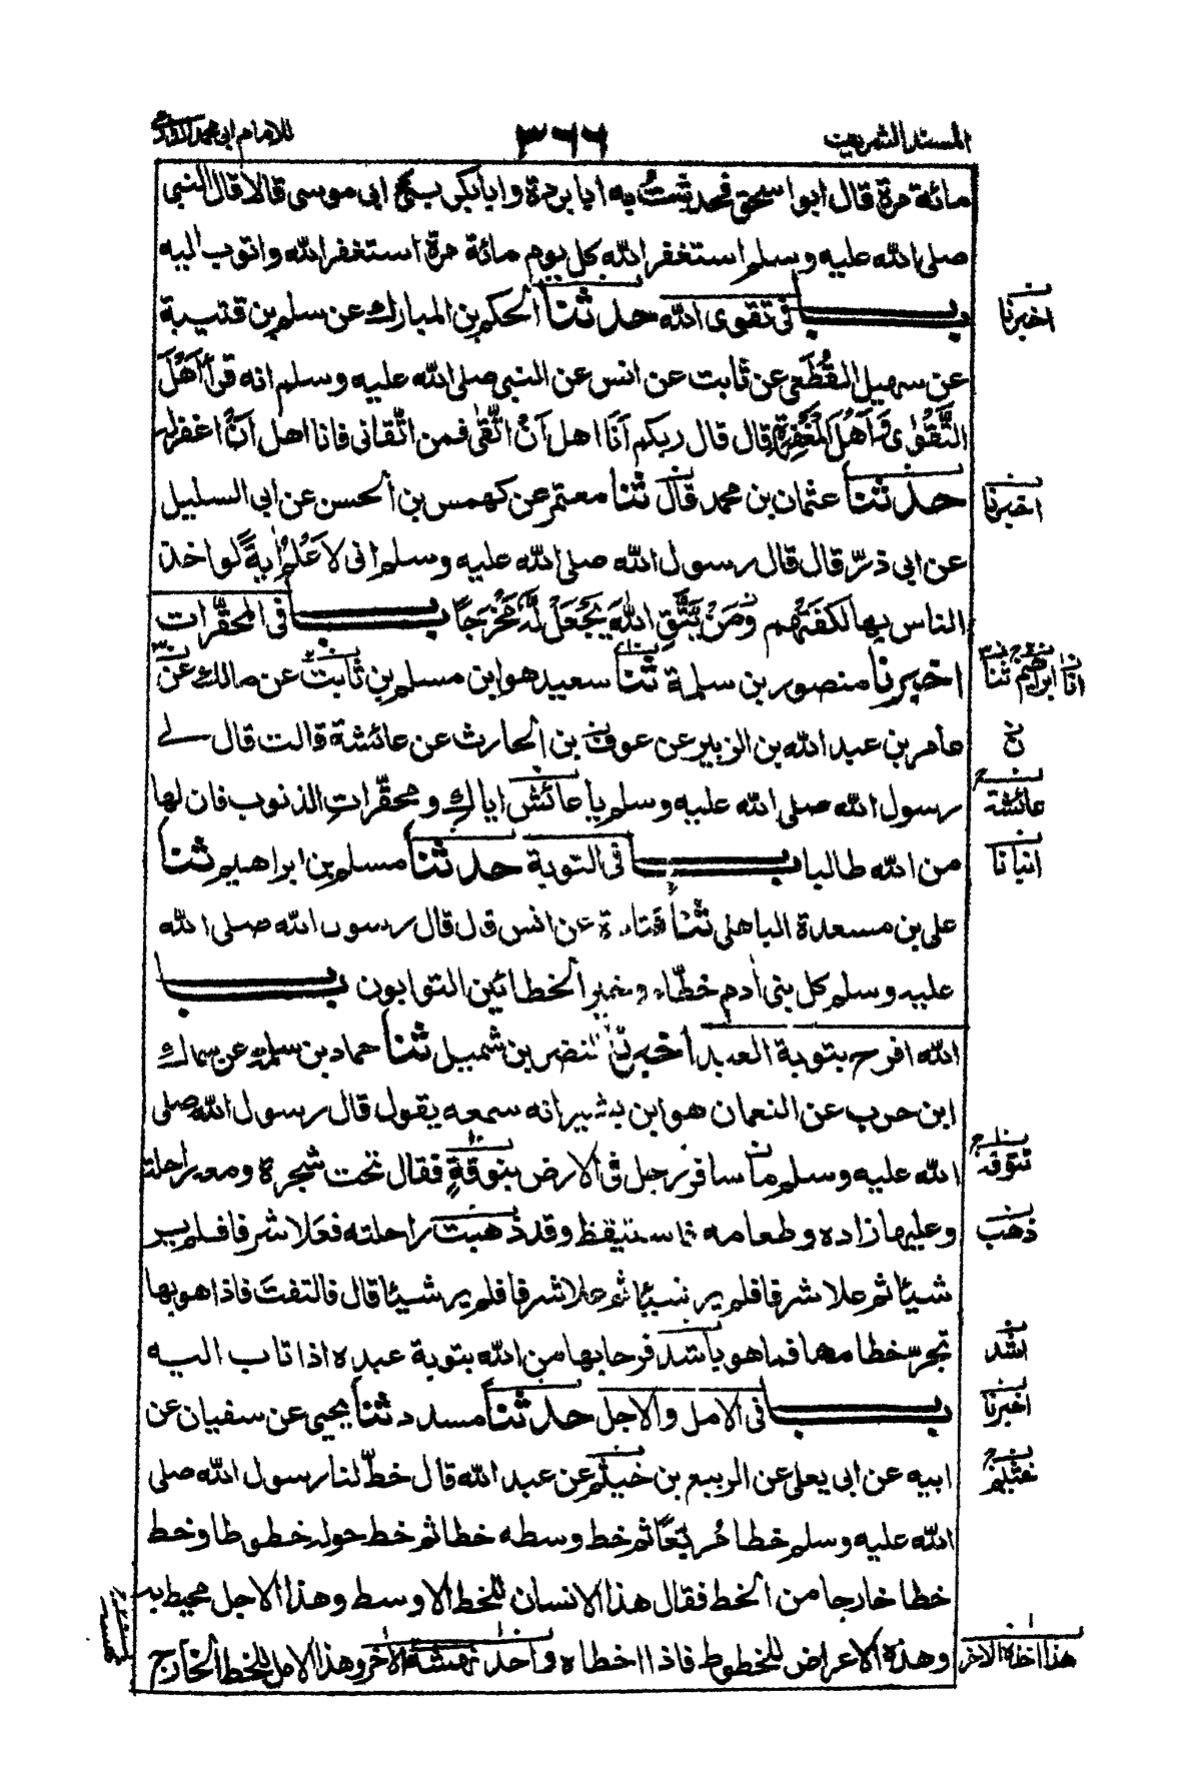 المسند الشريف
٣٦٦
للامام ابی محمد الدارمی
مائة مرة قال ابوا سحق فحدثت به ابا بردة وابا بكر بنی ابی موسی قالا قال النبی
صلی الله عليه وسلم استغفر الله كل يوم مائة مرة استغفر الله واتوب اليه
بـــاب فی تقوی الله حدثنا الحكم بن المبارك عن سلم بن قتيبة
اخبرنا
عن سهيل القُطَعی عن ثابت عن انس عن النبی صلی الله عليه وسلم انه قرأ اَهْلُ
التَّقْوٰی وَاَهْلُ الْمَغْفِرَةِ قال قال ربكم اَنَا اهل اَنْ اتّقٰی فمن اتّقانی فانا اهل اَنْ اغفر له
حدثنا عثمان بن محمد قال ثنا معتمر عن كهمس بن الحسن عن ابی السليل
اخبرنا
عن ابی ذرّ قال قال رسول الله صلی الله عليه وسلم انی لاَعْلَمُ اٰيةً لو اخذ
الناس بها لكفتهم وَمَنْ يَّتَّقِ اللهَ يَجْعَلْ لَّهُ مَخْرَجًا بـــاب فی المحقّرات
اخبرنا منصور بن سلمة ثنا سعيد هو ابن مسلم بن ثابت عن مالك عن
انا ابراهيم ثنا
عامر بن عبد الله بن الزبير عن عوف بن الحارث عن عائشة قالت قال لے
رسول الله صلی الله عليه وسلم يا عائش اياك ومحقّراتِ الذنوب فان لها
عائشة
من الله طالبا بـــاب فی التوبة حدثنا مسلم بن ابراهيم ثنا
انبانا
علی بن مسعدة الباهلی ثنا قتادة عن انس قال قال رسول الله صلی الله
عليه وسلم كل بنی اٰدم خطّاء وخير الخطائين التوابون بـــاب
الله افرح بتوبة العبد اخبرنا النضر بن شميل ثنا حماد بن سلمة عن سماك
ابن حرب عن النعمان هو ابن بشير انه سمعه يقول قال رسول الله صلی
الله عليه وسلم ما سافر رجل فی الارض بنوقةٍ فقال تحت شجرة ومعه راحلته
تنوفة
وعليها زاده وطعامه فاستيقظ وقد ذهبت راحلته فعلا شرفا فلم ير
ذهب
شيئا ثم علا شرفا فلم ير شيئا ثم علا شرفا فلم ير شيئا قال فالتفت فاذا هو بها
تجرّ خطامها فما هو باشد فرحا بها من الله بتوبة عبده اذا تاب اليه
اشد
بـــاب فی الامل والاجل حدثنا مسدد ثنا يحيی عن سفيان عن
اخبرنا
ابيه عن ابی يعلی عن الربيع بن خيثم عن عبد الله قال خطّ لنا رسول الله صلی
الله عليه وسلم خطا مُربّعًا ثم خط وسطه خطا ثم خط حوله خطوطا وخط
خطا خارجا من الخط فقال هذا الانسان للخط الاوسط وهذا الاجل محيط به
وهذه الاعراض للخطوط فاذا اخطاه واحد نهشه الاخر وهذا الامل للخط الخارج
هذا اخذه الاخر